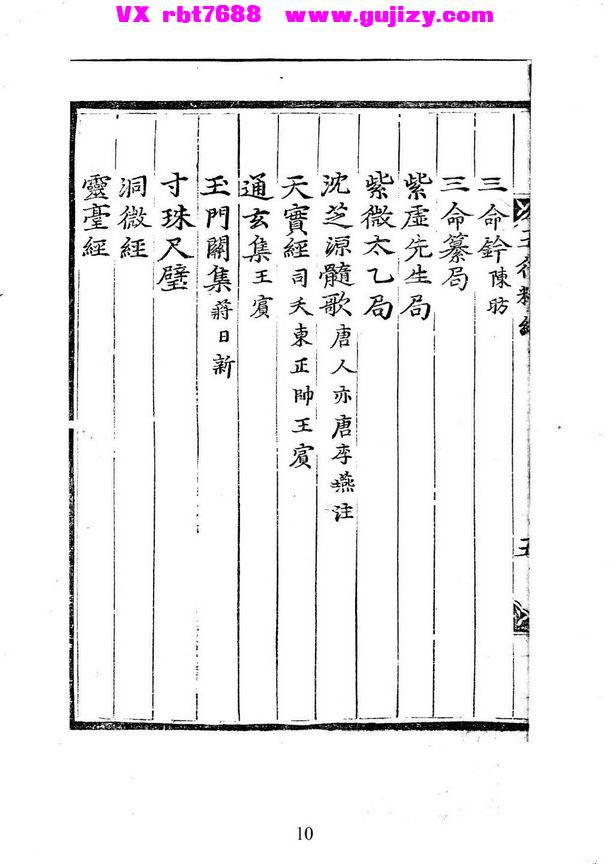 VX rbt7688 www.gujizy.com
三命鈐 陳昉
三命纂局
紫虛先生局
紫微太乙局
沈芝源髓歌 唐人亦唐李燕注
天寶經 司天東正帥王賔
通玄集 王賔
玉門關集 蔣日新
寸珠尺璧
洞微經
靈臺經
10